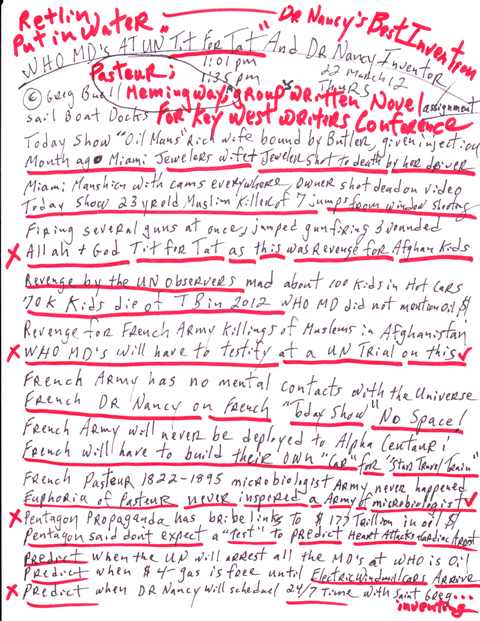 Retlin Dr Nancy's Best Invention
Put in Water"
WHO MD's AT UN Tit For Tat" And Dr Nancy Inventor
Pasteur; 1:01 pm
1:35 pm 22 March 12
Thurs
© Greg Buell Hemingway; group's written Novel assignment
Sail Boat Docks For Key West Writers Conference
Today Show "Oil Mans" Rich wife bound by Butler, given injection
Month ago Miami Jewelers wife + Jeweler shot to death by her driver
Miami Manshion with cams everywhere, owner shot dead on video
Today Show 23 yr old Muslim Killer of 7 jumps from window shooting
Firing several guns at once, jumped gun firing 3 wounded
X Allah + God Tit for Tat as this was Revenge for Afghan Kids
Revenge by the UN Observers mad about 100 Kids in Hot Cars
70K Kids die of TB in 2012 WHO MD did not mention Oil $!
Revenge for French Army Killings of Muslems in Afghanistan
X WHO MD's will have to testify at a UN Trial on this ✓
French Army has no mental contacts with the Universe
French DR Nancy on French "Today Show" No Space!
French Army will never be deployed to Alpha Centauri
French will have to build their own "Car" for "Star Travel Train"
French Pasteur 1822-1895 microbiologist Army never happened
Euphoria of Pasteur never inspered a Army of microbiologist ✓
X Pentagon Propaganda has bribe links to $177 Trillion in oil $!
Pentagon said dont expect a "test" to predict Heart Attacks + Cardiac Arrest
Predict when the UN will arrest all the MD's at WHO is Oil
Predict when $4 gas is free until Electric Windmill Cars Arrive
X Predict when DR Nancy will scheduel 24/7 Time with Saint Greg...
inventing